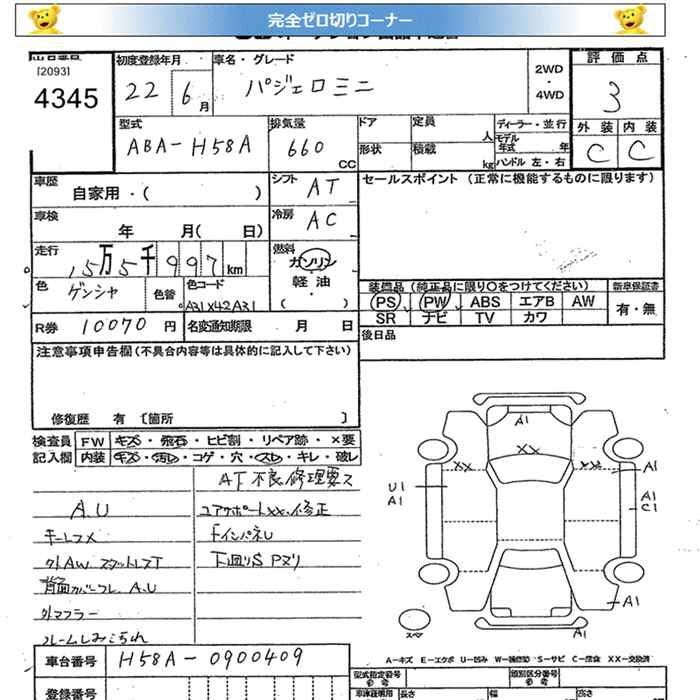 完全ゼロ切りコーナー
[2093]
4345
初度登録年月
22 6月
車名・グレード
パジェロミニ
2WD・4WD
評価点
3
外装 内装
C C
型式
ABA-H58A
排気量
660 CC
ドア
形状
定員 人
積載 kg
ディーラー・並行
モデル年式 年
ハンドル 左・右
車歴
自家用・( )
シフト AT
セールスポイント (正常に機能するものに限ります)
車検
年 月( 日)
冷房 AC
走行
15万5千997km
燃料
ガソリン
軽油
( )
色
ゲンシャ
色替
色コード
A31X42A31
装備品 (純正品に限り〇をつけてください)
PS PW ABS エアB AW
SR ナビ TV カワ
新車保証書
有・無
R券 10070円
名変通知期限 月 日
後日品
注意事項申告欄(不具合内容等は具体的に記入して下さい)
修復歴 有 [箇所 ]
検査員 FW キズ・飛石・ヒビ割・リペア跡・×要
記入欄 内装 キズ・汚レ・コゲ・穴・スレ・キレ・破レ
AT不良修理要ス
A.U
コアサポートXX.修正
キーレスX
FインパネU
外AW スタットレスT
下廻りS Pヌリ
背面カバーフレ A.U
外マフラー
ルームしみこられ
A1
XX
XX
XX
A1
U1
A1
A1
C1
A1
スペア
A-キズ E-エクボ U-凹み W-補修跡 S-サビ C-腐食 XX-交換済
車台番号 H58A-0900409
型式指定番号
参考
類別区分番号
参考
登録番号
車検証明用
参考
長さ
幅
高さ